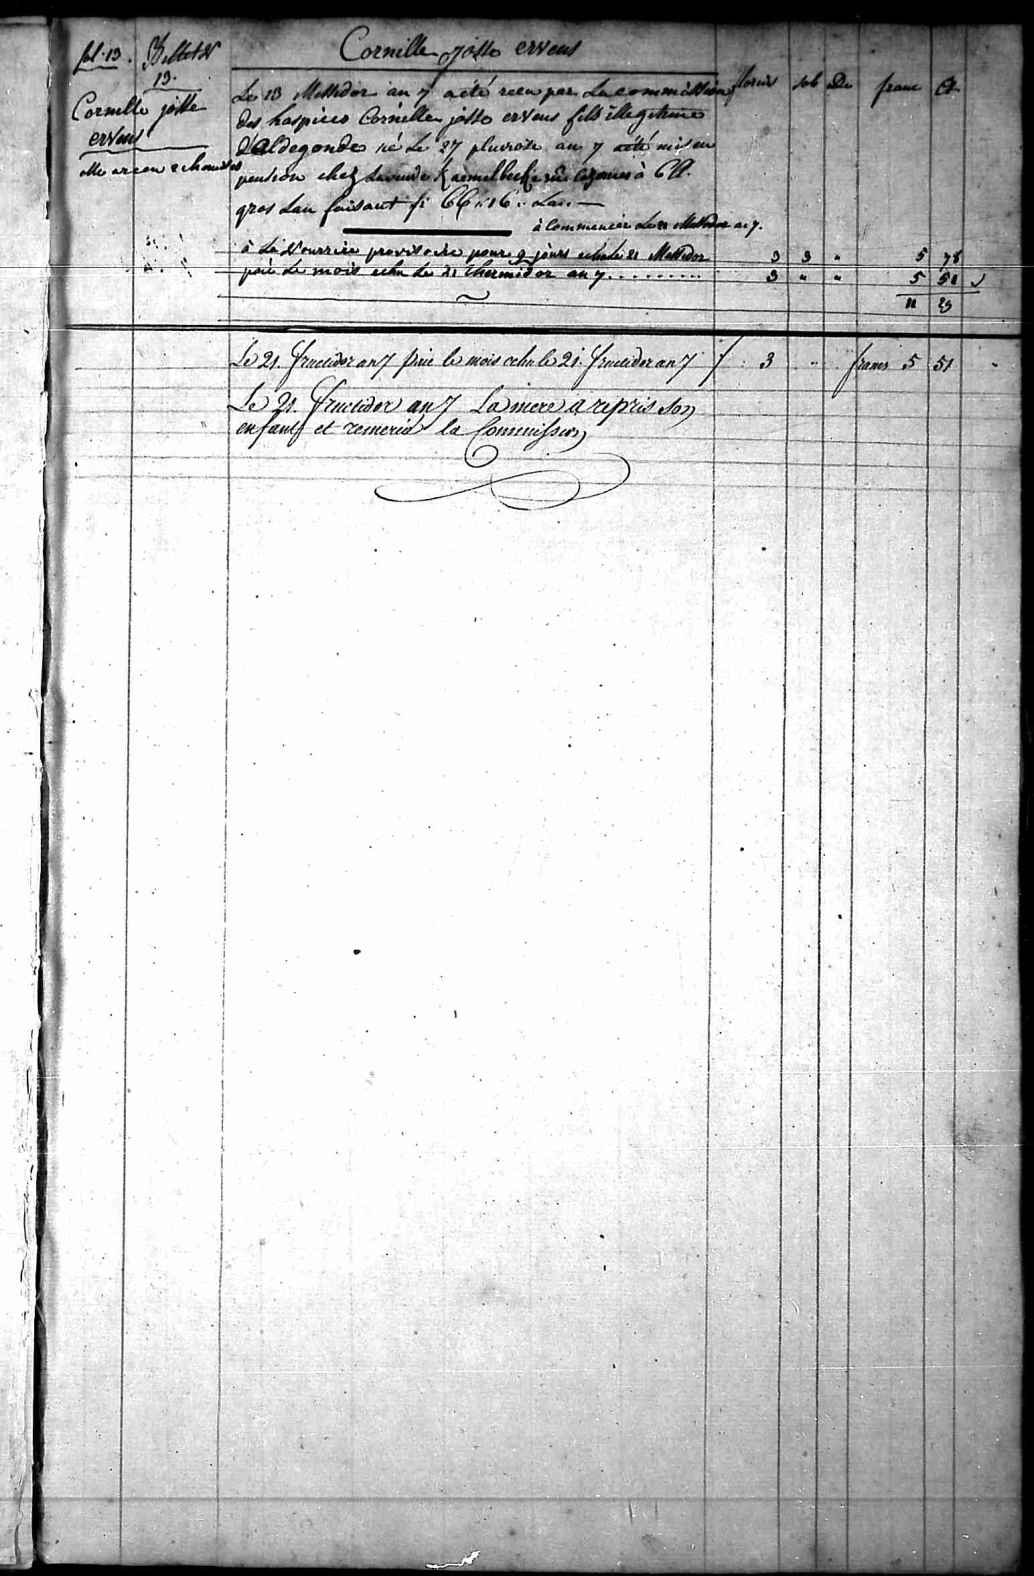 fol. 13. Billet N
13.
Cornille josse ervens
florins sols De franc Ct
Cornille josse
ervens
elle a recu 2 chemises
Le 13 Messidor an 7 a été recu par La commission
des hospices Cornille josse ervens fils illegitime
D'aldegonde né Le 27 pluviose an 7 a été mis en
pension chez La veuve à 6 ll.
gros L'an faisant fr 66 " 16 "
à Commencer Le 21 Messidor an 7.
à La Nourrice provisoire pour 9 jours echu le 21 Messidor 3 3 " 5 78
paié Le mois echu Le 21 thermidor an 7 . . . . . . . . . 3 " " 5 51
11 29
Le 21. fructidor an 7 paié le mois echu le 21. fructidor an 7 f 3 " francs 5 51
Le 21. fructidor an 7 La mere a repris son
enfant et remercié la Commission